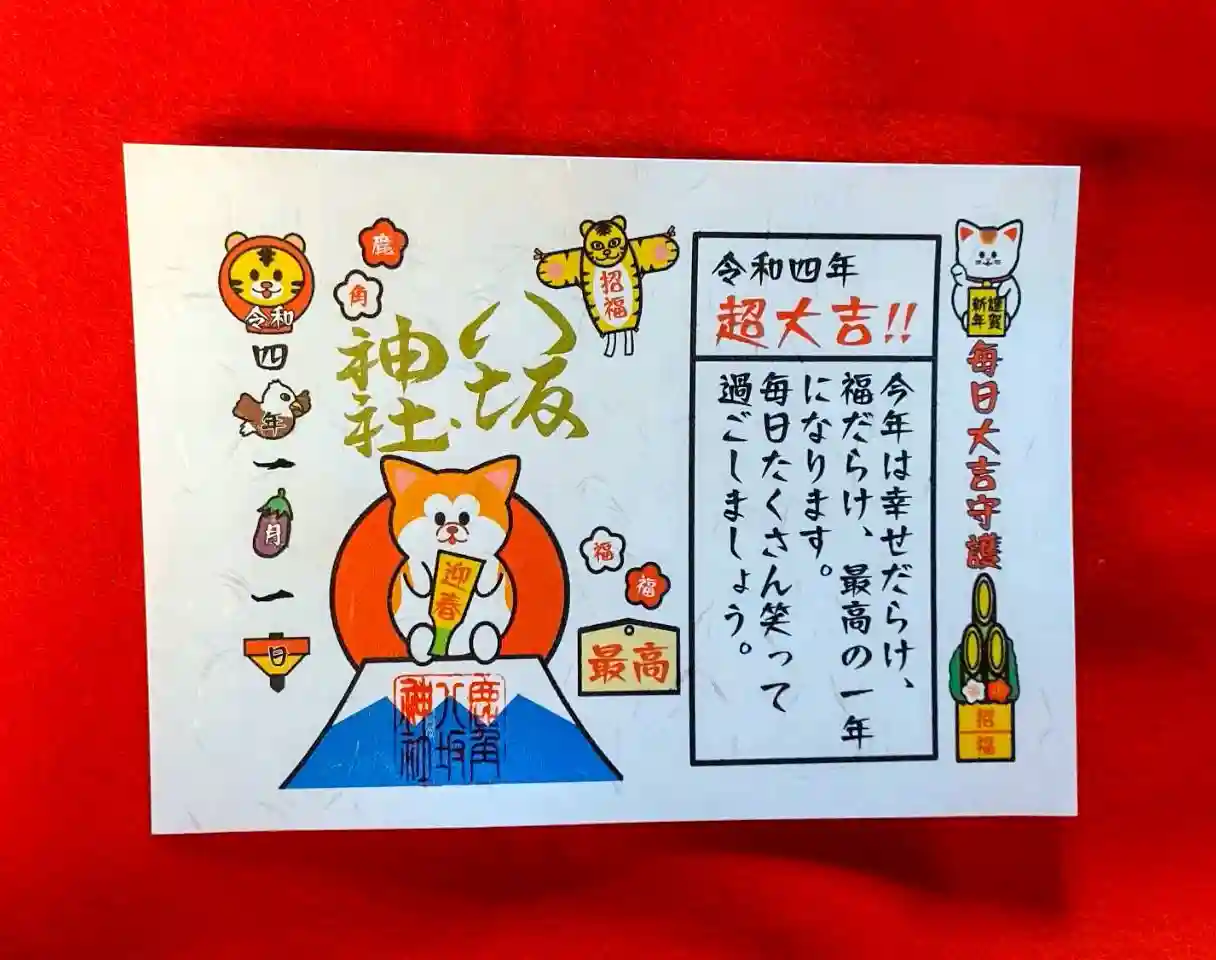 謹賀
新年
毎日大吉守護
招
福
令和四年
超大吉!!
今年は幸せだらけ、
福だらけ、最高の一年
になります。
毎日たくさん笑って
過ごしましょう。
招
福
鹿
角
八坂
神社
迎春
福
福
最高
鹿角
八坂
神社
令和
四
年
一
月
一
日